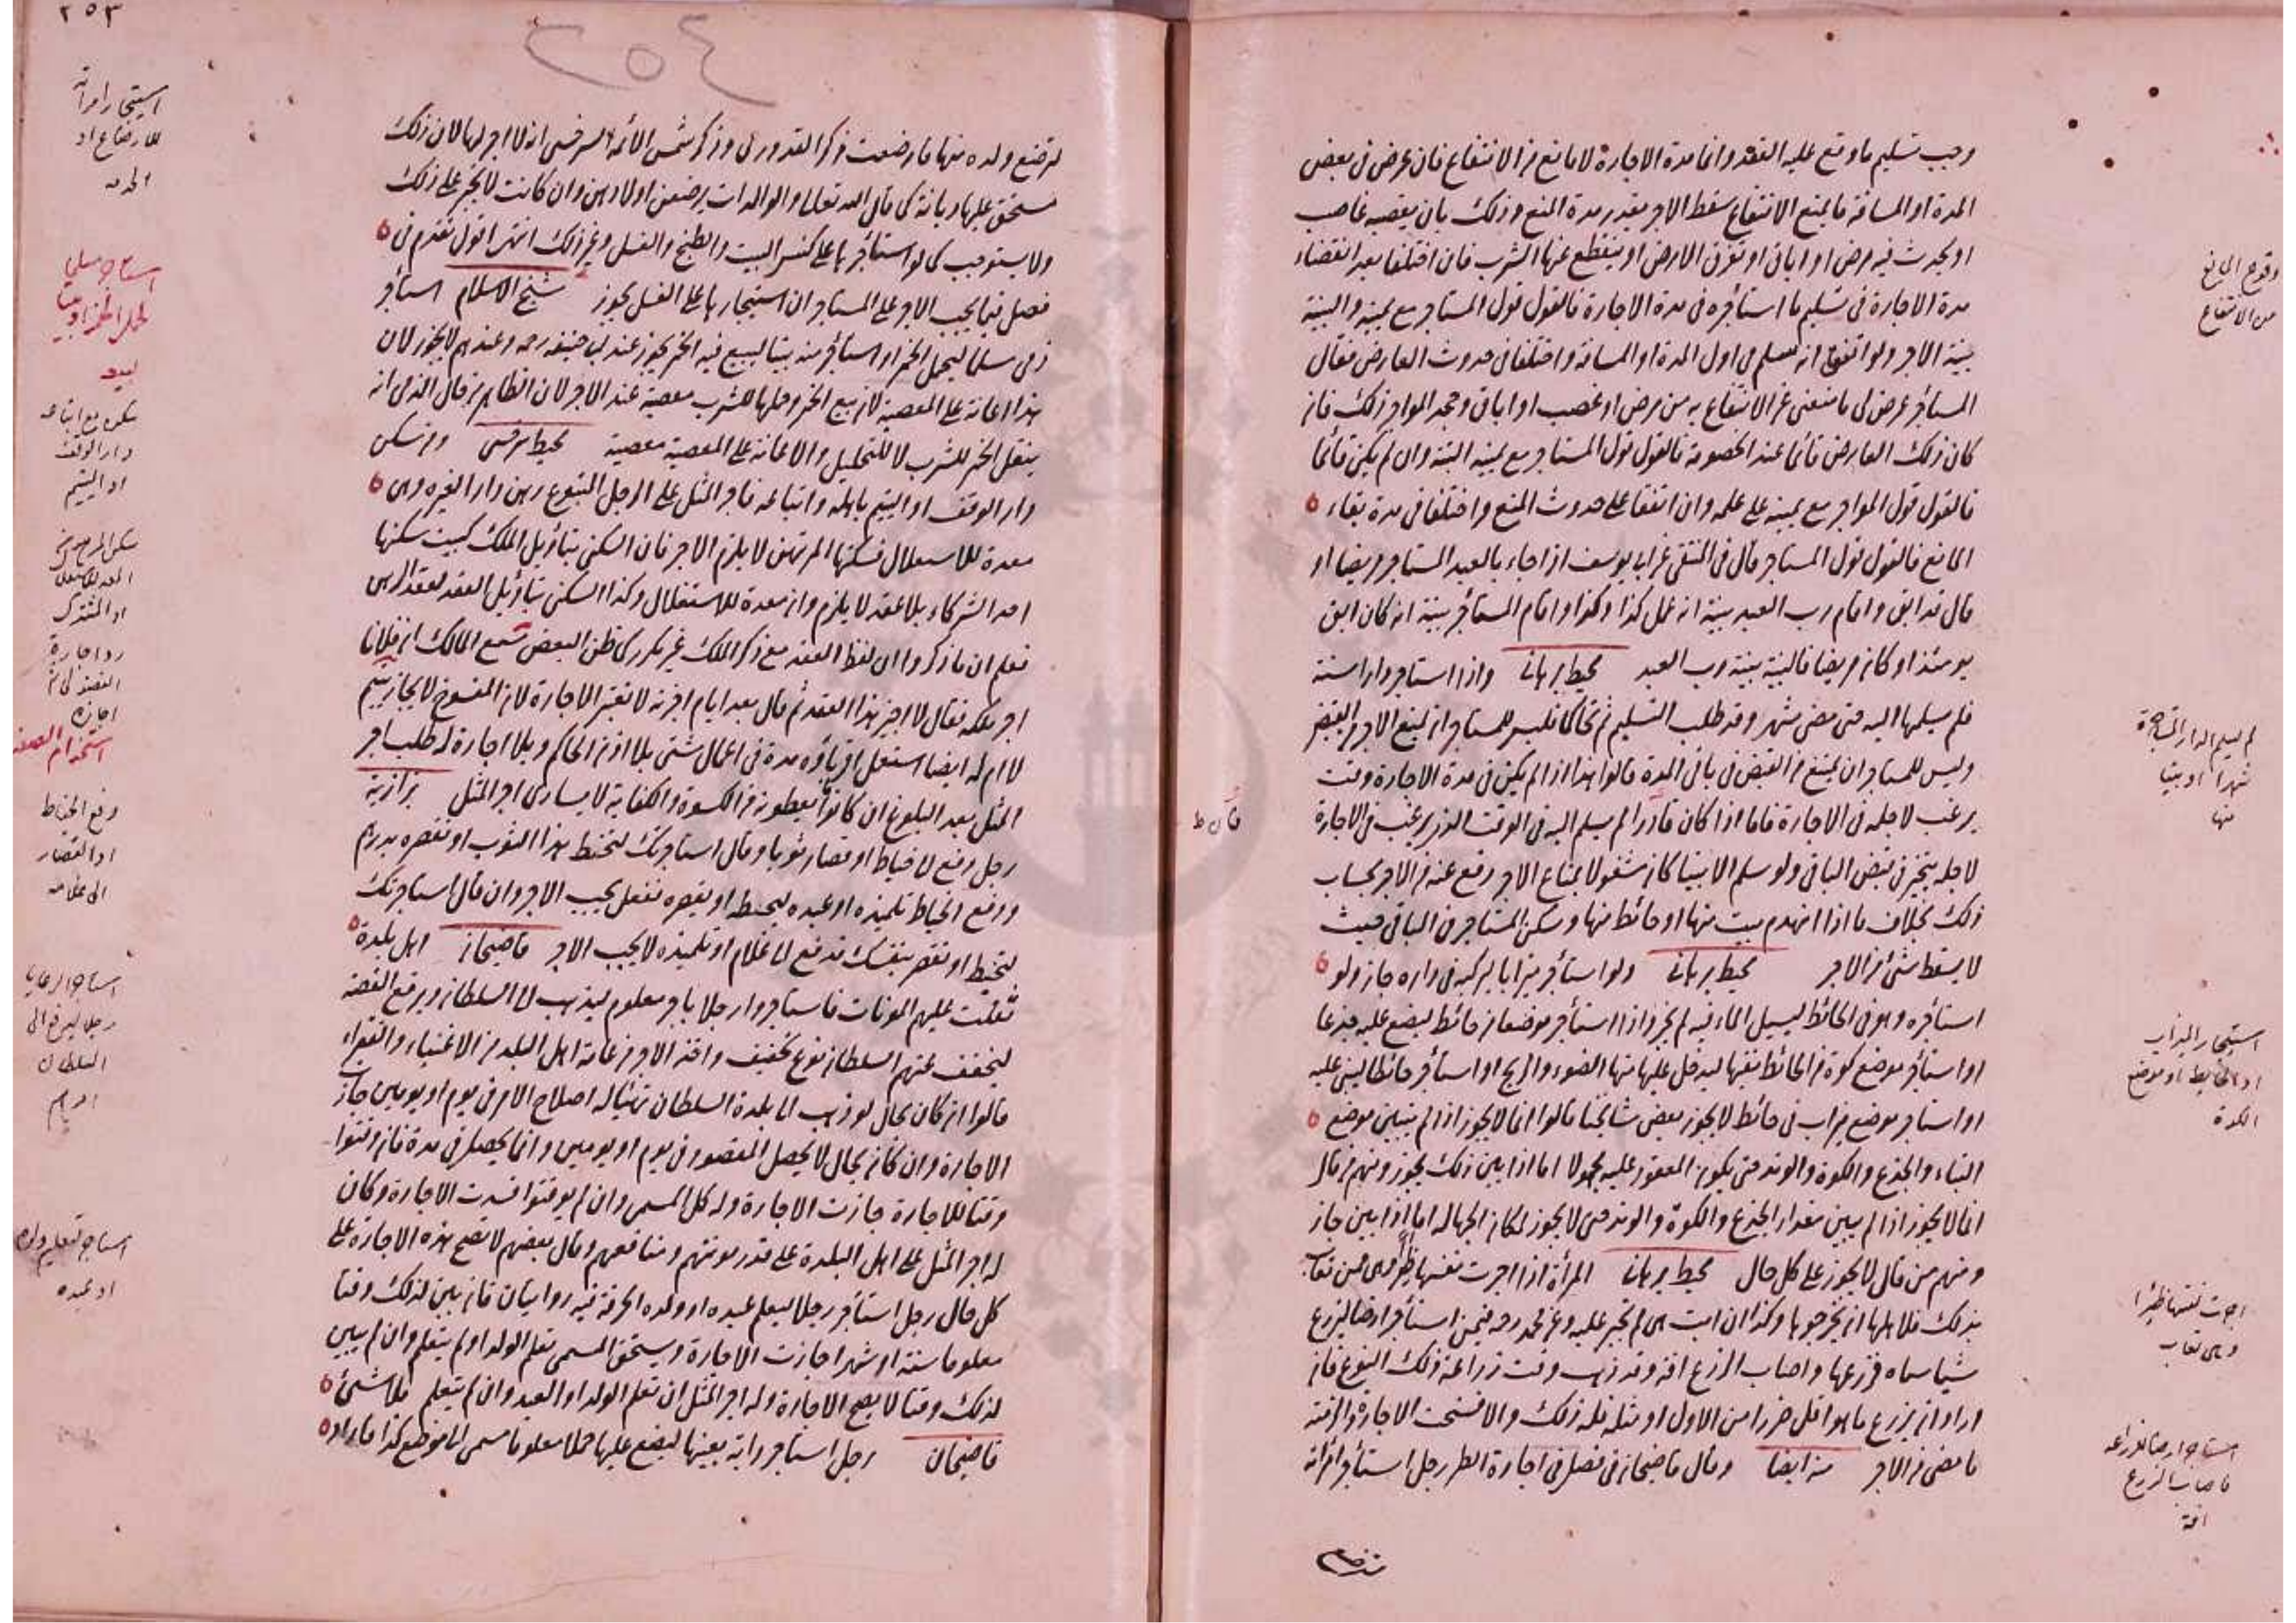 وجب تسليم ما وقع عليه العقد وانما مدة الاجارة لا مانع من الانتفاع فان عرض فى بعض
المدة او المسافة ما يمنع الانتفاع سقط الاجر بقدر مدة المنع وذلك بان يغصبه غاصب
او يحدث فيه مرض او اباق او تغرق الارض او ينقطع عنها الشرب فان اختلفا بعد انقضاء
مدة الاجارة فى تسليم ما استأجره فى مدة الاجارة فالقول قول المستاجر مع يمينه والبينة
بينة الاجر ولو اتفقا انه سلم فى اول المدة او المسافة واختلفا فى حدوث العارض فقال
المستأجر عرض لى ما منعنى عن الانتفاع به من مرض او غصب او اباق وجحد المواجر ذلك فان
كان ذلك العارض قائما عند الخصومة فالقول قول المستاجر مع يمينه البتة وان لم يكن قائما
فالقول قول المواجر مع يمينه على علمه وان اتفقا على حدوث المنع واختلفا فى مدة بقاء
المانع فالقول قول المستاجر قال فى المنتقى عن ابى يوسف اذا جاء بالعبد المستاجر مريضا او
قال قد ابق واقام رب العبد بينة انه عمل كذا وكذا واقام المستأجر بينة انه كان ابق
يومئذ او كان مريضا فالبينة بينة رب العبد محيط برهانى واذا استاجر دارا سنة
فلم يسلمها اليه حتى مضى شهر وقد طلب التسليم ثم تحاكما فليس للمستاجر ان يمنع الاجر من القبض
وليس للمستاجر ان يمتنع من القبض فى باقى المدة قالوا هذا اذا لم يكن فى مدة الاجارة وقت
يرغب لاجله فى الاجارة فاما اذا كان فاذا لم يسلم اليه فى الوقت الذى يرغب فى الاجارة
لاجله يتخير فى قبض الباقى ولو سلم الا بيتا كان مشغولا بمتاع الاجر رفع عنه من الاجر بحساب
ذلك بخلاف ما اذا انهدم بيت منها او حائط منها وسكن المستاجر فى الباقى حيث
لا يسقط شئ من الاجر محيط برهانى ولو استأجر ميزابا ليركبه فى داره جاز ولو
استأجره وهو فى الحائط ليسيل الماء فيه لم يجز واذا استأجر موضعا من حائط ليضع عليه جذعا
او استأجر موضع كوة من الحائط نقبها ليدخل عليها منها الضوء والريح او استأجر حائطا ليبنى عليه
او استاجر موضع ميزاب فى حائط لا يجوز بعض مشايخنا قالوا انما لا يجوز اذا لم يتبين موضع
البناء والجذع والكوة والوتد حتى يكون المعقود عليه مجهولا اما اذا بين ذلك يجوز ومنهم من قال
انما لا يجوز اذا لم يبين مقدار الجذع والكوة والوتد حتى لا يجوز لمكان الجهالة اما اذا بين جاز
ومنهم من قال لا يجوز على كل حال محيط برهانى المرأة اذا اجرت نفسها ظئرا وهى ممن تعاب
بذلك فلاهلها ان يخرجوها وكذا ان ابت هى لم تجبر عليه وعن محمد رحه فيمن استأجر ارضا ليزرع
شيا سماه فزرعها واصاب الزرع افة وقد ذهب وقت زراعة ذلك النوع فان
اراد ان يزرع ما هو اقل ضررا من الاول او مثله فله ذلك والا فسخت الاجارة والزمته
ما مضى من الاجر منه ايضا وقال قاضيخان فى فصل فى اجارة الظئر رجل استأجر امرأته
وقوع المانع
من الانتفاع
لم يسلم الدار المستاجرة
شهرا او بيتا
منها
استيجار الميزاب
او الحايط او موضع
الكوة
اجرت نفسها ظئرا
وهى تعاب
استاجر ارضا للزراعة
فاصاب الزرع
افة
٢٥٣
٢٥٤
لترضع ولده منها فارضعت ذكر القدورى وذكر شمس الائمة السرخسى انه لا اجر لها لان ذلك
مستحق عليها ديانة كما قال الله تعالى والوالدات يرضعن اولادهن وان كانت لا تجبر على ذلك
ولا يستوجب كما لو استأجرها على كنس البيت والطبخ والغسل وغير ذلك انتهى اقول تقدم فى
فصل فيما يجب الاجر على المستاجر ان استيجارها على الغسل يجوز شيخ الاسلام استأجر
ذمى مسلما ليحمل الخمر او استأجر منه بيتا ليبيع فيه الخمر يجوز عند ابى حنيفة رحه وعندهم لا يجوز لان
هذا اعانة على المعصية لان بيع الخمر وحملها للشرب معصية عند الاجر لان الظاهر من حال الذمى انه
ينقل الخمر للشرب لا للتخليل والاعانة على المعصية معصية محيط سرخسى ومن سكن
دار الوقف او اليتيم باهله واتباعه فاجر المثل على الرجل المتبوع رهن دار الغير وهى
معدة للاستغلال فسكنها المرتهن لا يلزم الاجر فان السكنى بتأويل الملك كبيت سكنها
احد الشركاء بلا عقد لا يلزم وان معدة للاستغلال وكذا السكنى بتأويل العقد كعقد الرهن
فعلم ان ما ذكروا ان لفظ العقد مع ذكر الملك غير مكرر كما ظن البعض سمع المالك ان فلانا
اجر ملكه فقال لا اجيز هذا العقد ثم قال بعد ايام اجزته لا تعتبر الاجارة لان المفسوخ لا يجاز يتيم
لا ام له ايضا استعمل اقرباؤه مدة فى اعمال شتى بلا اذن الحاكم وبلا اجارة له طلب اجر
المثل بعد البلوغ ان كانوا يعطونه من الكسوة والكفاية لا يساوى اجر المثل بزازية
رجل دفع لا خياط او قصار ثوبا وقال استاجرتك لتخيط هذا الثوب او تقصره بدرهم
ودفع الخياط تلميذه او عبده ليخيطه او يقصره ففعل يجب الاجر وان قال استاجرتك
لتخيط او تقصر بنفسك فدفع الى غلام او تلميذه لا يجب الاجر قاضيخان اهل بلدة
ثقلت عليهم المونات فاستاجروا رجلا باجر معلوم ليذهب الى السلطان ويرفع القصة
ليخفف عنهم السلطان نوع تخفيف واخذ الاجر من عامة اهل البلد من الاغنياء والفقراء
قالوا ان كان بحال لو ذهب الى بلدة السلطان تهيأ له اصلاح الامر فى يوم او يومين جازت
الاجارة وان كان بحال لا يحصل المقصود فى يوم او يومين وانما يحصل فى مدة فان وقتوا
وقتا للاجارة جازت الاجارة وله كل المسمى وان لم يوقتوا فسدت الاجارة وكان
له اجر المثل على اهل البلدة على قدر مونتهم ومنافعهم وقال بعضهم لا تصح هذه الاجارة على
كل حال رجل استأجر رجلا ليعلم عبده او ولده الحرفة فيه روايتان فان بين لذلك وقتا
معلوما سنة او شهرا جازت الاجارة ويستحق المسمى تعلم الولد او لم يتعلم وان لم يبين
لذلك وقتا لا يصح الاجارة وله اجر المثل ان تعلم الولد او العبد وان لم يتعلم فلا شئ
قاضيخان رجل استاجر دابة بعينها ليضع عليها حملا معلوما مسمى الى موضع كذا فاراد
استيجار امرأته
للارضاع او
الخدمة
سكن مع اتباعه
دار الوقف
او اليتيم
سكن المرتهن
المعد للاستغلال
او المشترك
رد اجارة
الفضولى ثم
اجازه
استخدام الصغير
دفع الخياط
او القصار
الى غلامه
استاجر الرعايا
رجلا ليرفع الى
السلطان
امرهم
استاجر لتعليم ولده
او عبده